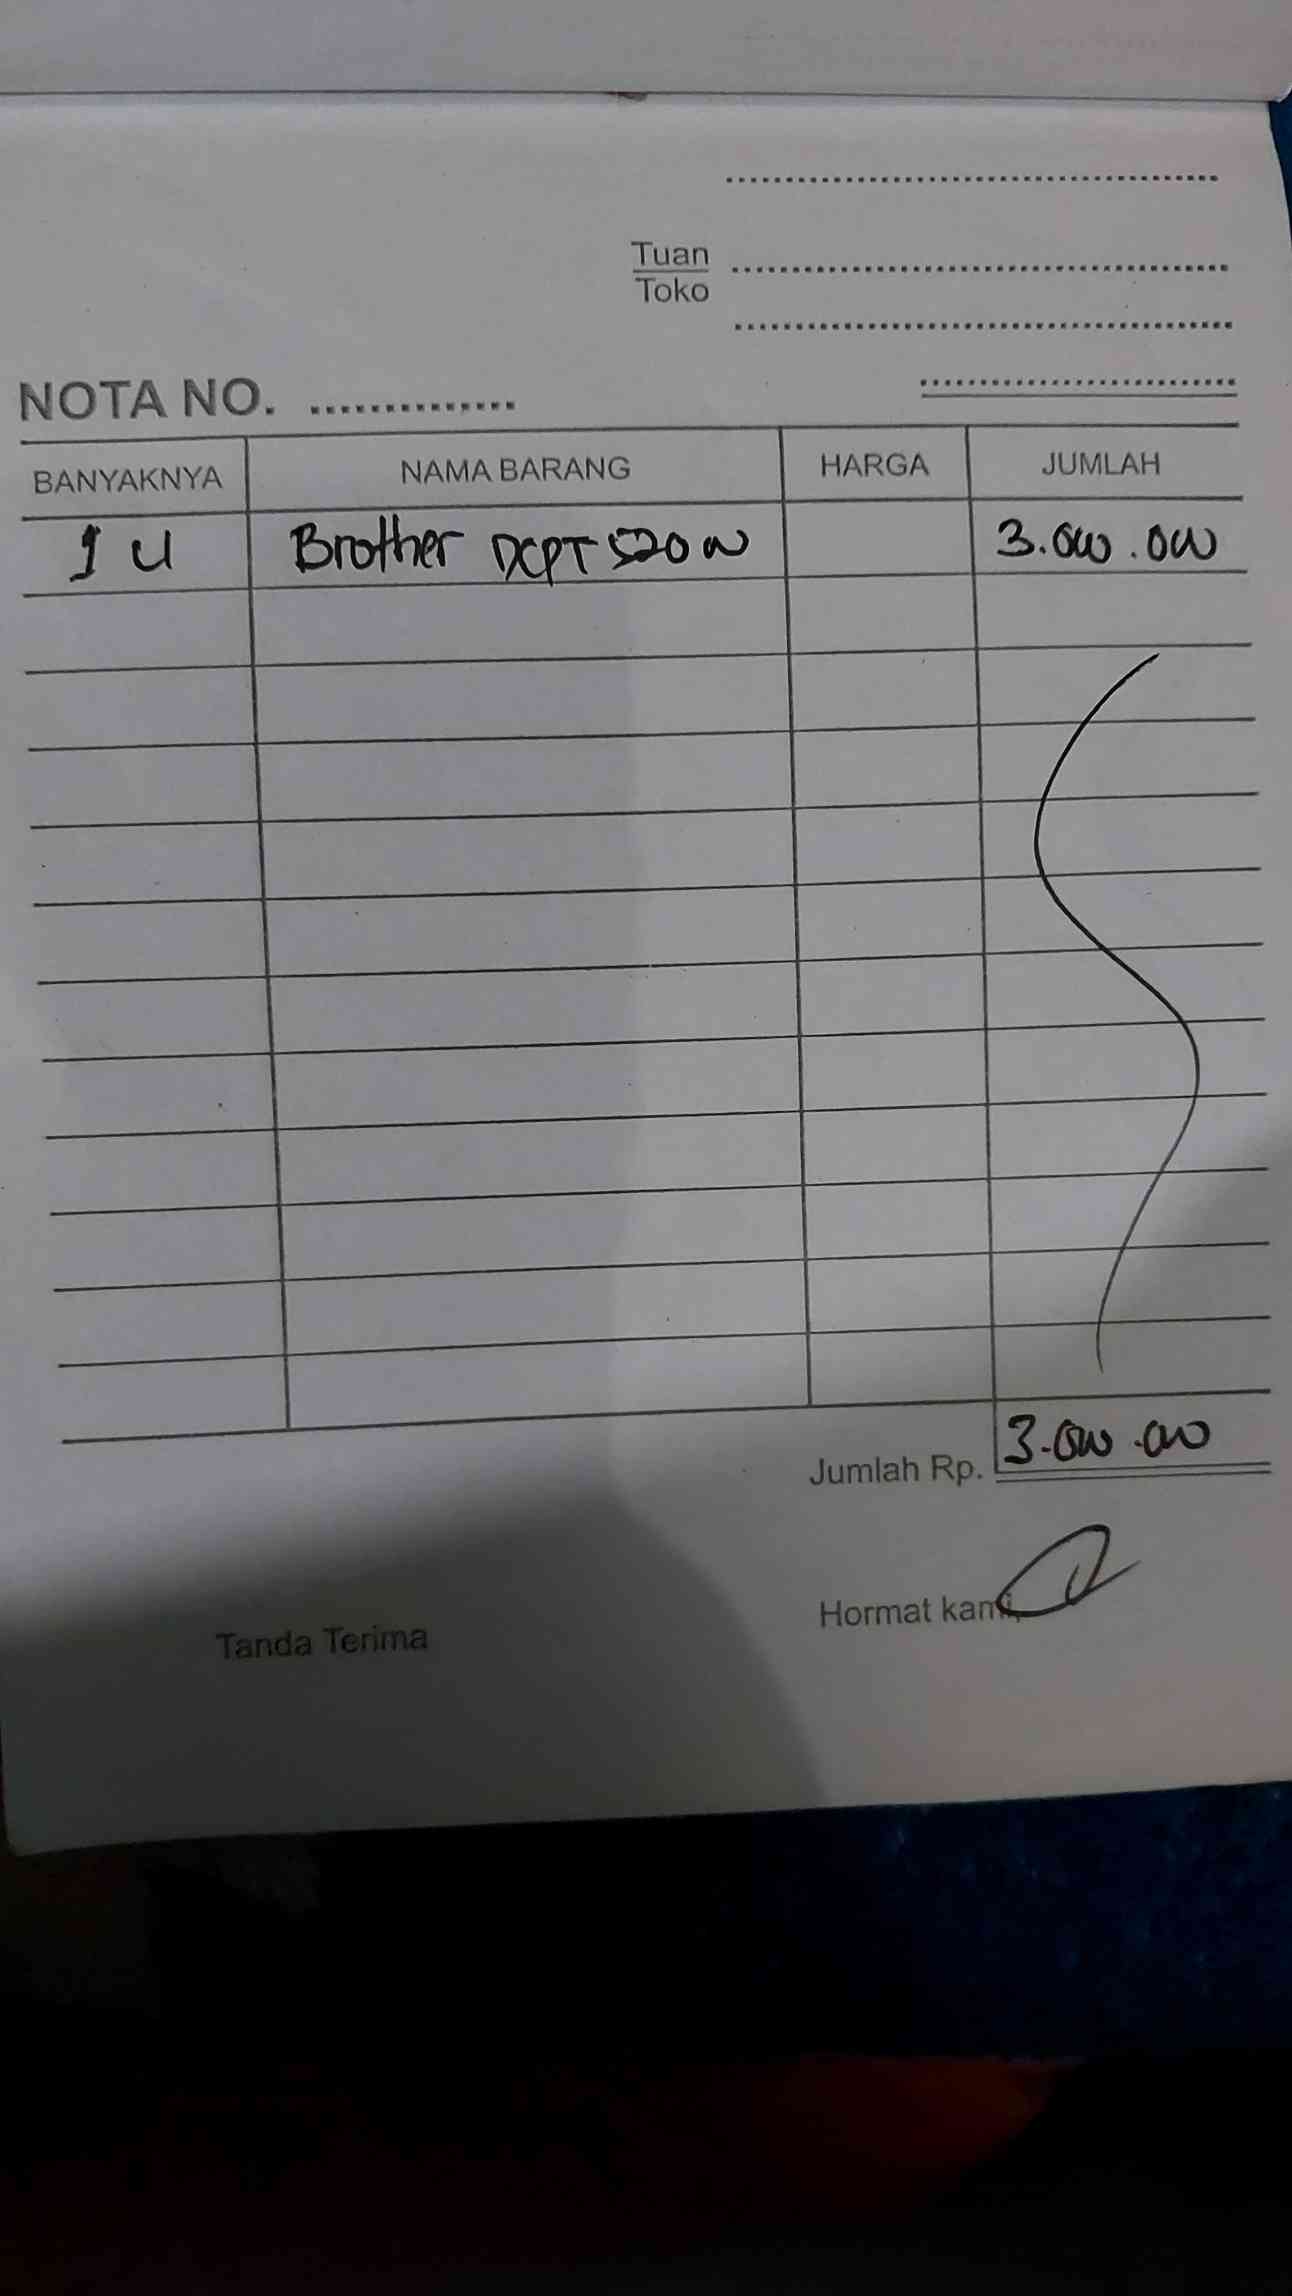 Tuan
Toko
NOTA NO.
BANYAKNYA NAMA BARANG HARGA JUMLAH
1 U Brother DCPT 520 W 3.000.000
Jumlah Rp. 3.000.000
Tanda Terima Hormat kami,